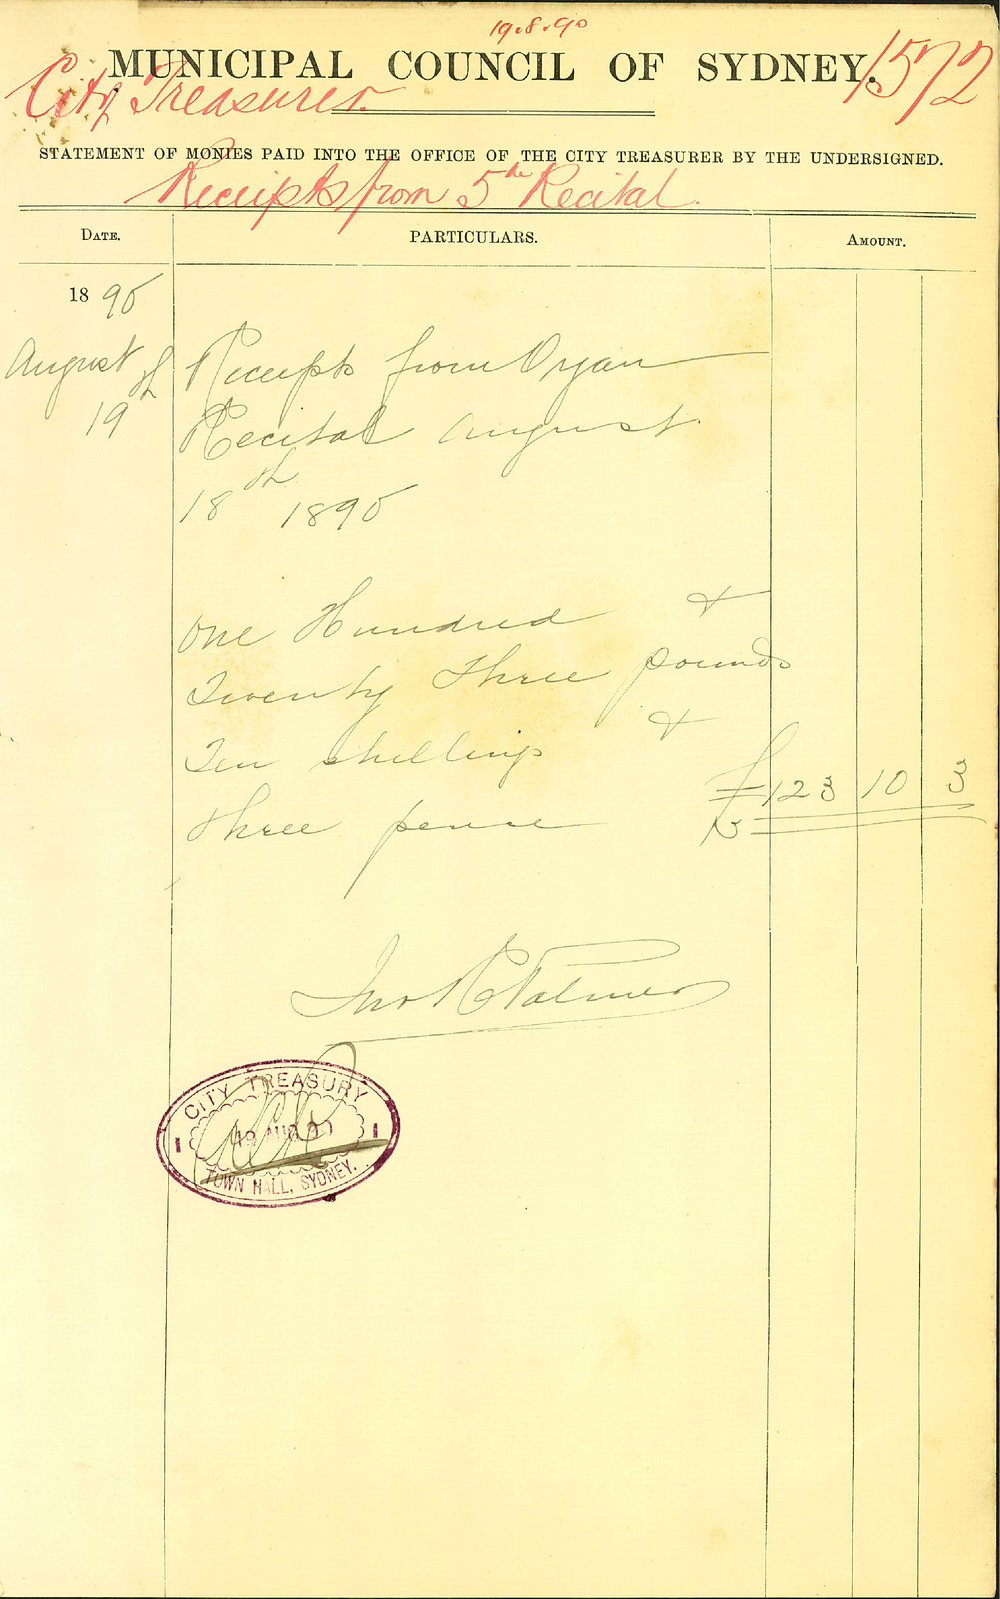 19.8.90
MUNICIPAL COUNCIL OF SYDNEY.
1572
City Treasurer.
STATEMENT OF MONIES PAID INTO THE OFFICE OF THE CITY TREASURER BY THE UNDERSIGNED.
Receipts from 5th Recital.
DATE. PARTICULARS. AMOUNT.
1890
August 19th Receipts from Organ
Recital August
18th 1890
One Hundred &
Twenty Three pounds
Ten shillings &
three pence £123 10 3
Jno R Palmer
CITY TREASURY
19 AUG 90
TOWN HALL, SYDNEY.